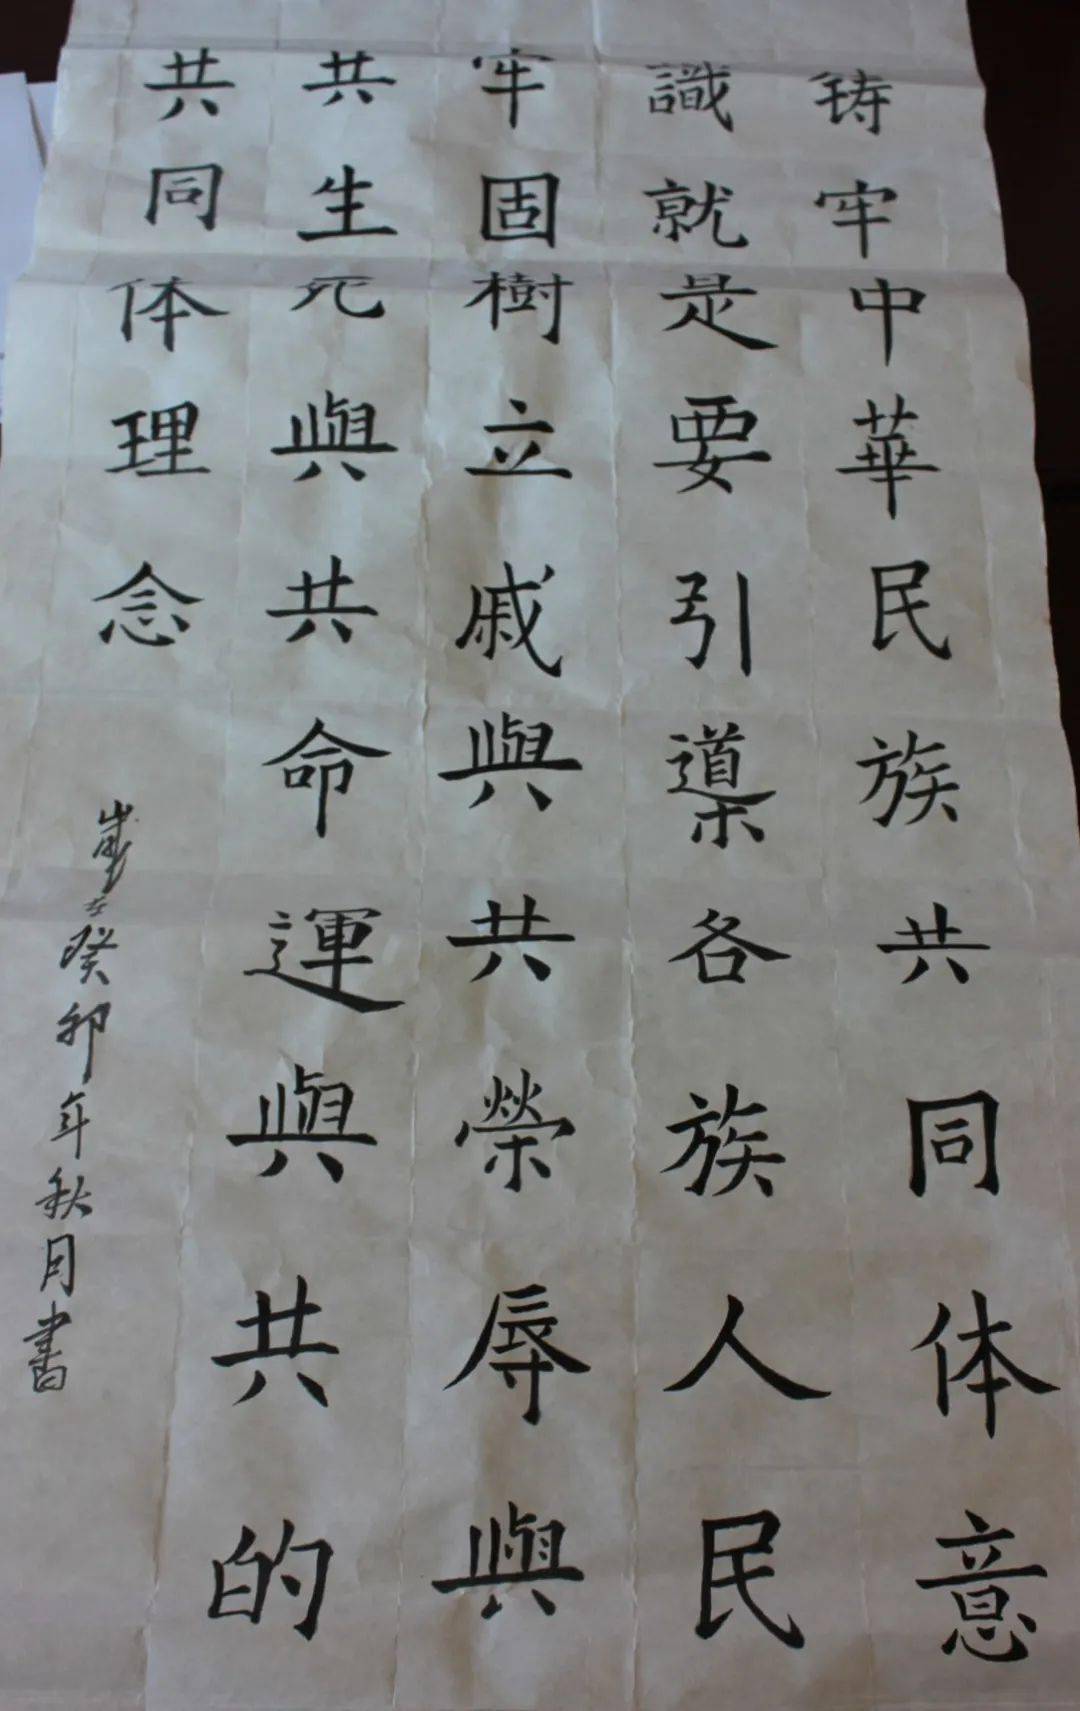 铸牢中華民族共同体意
識就是要引導各族人民
牢固樹立戚與共榮辱與
共生死與共命運與共的
共同体理念
歲在癸卯年秋月書